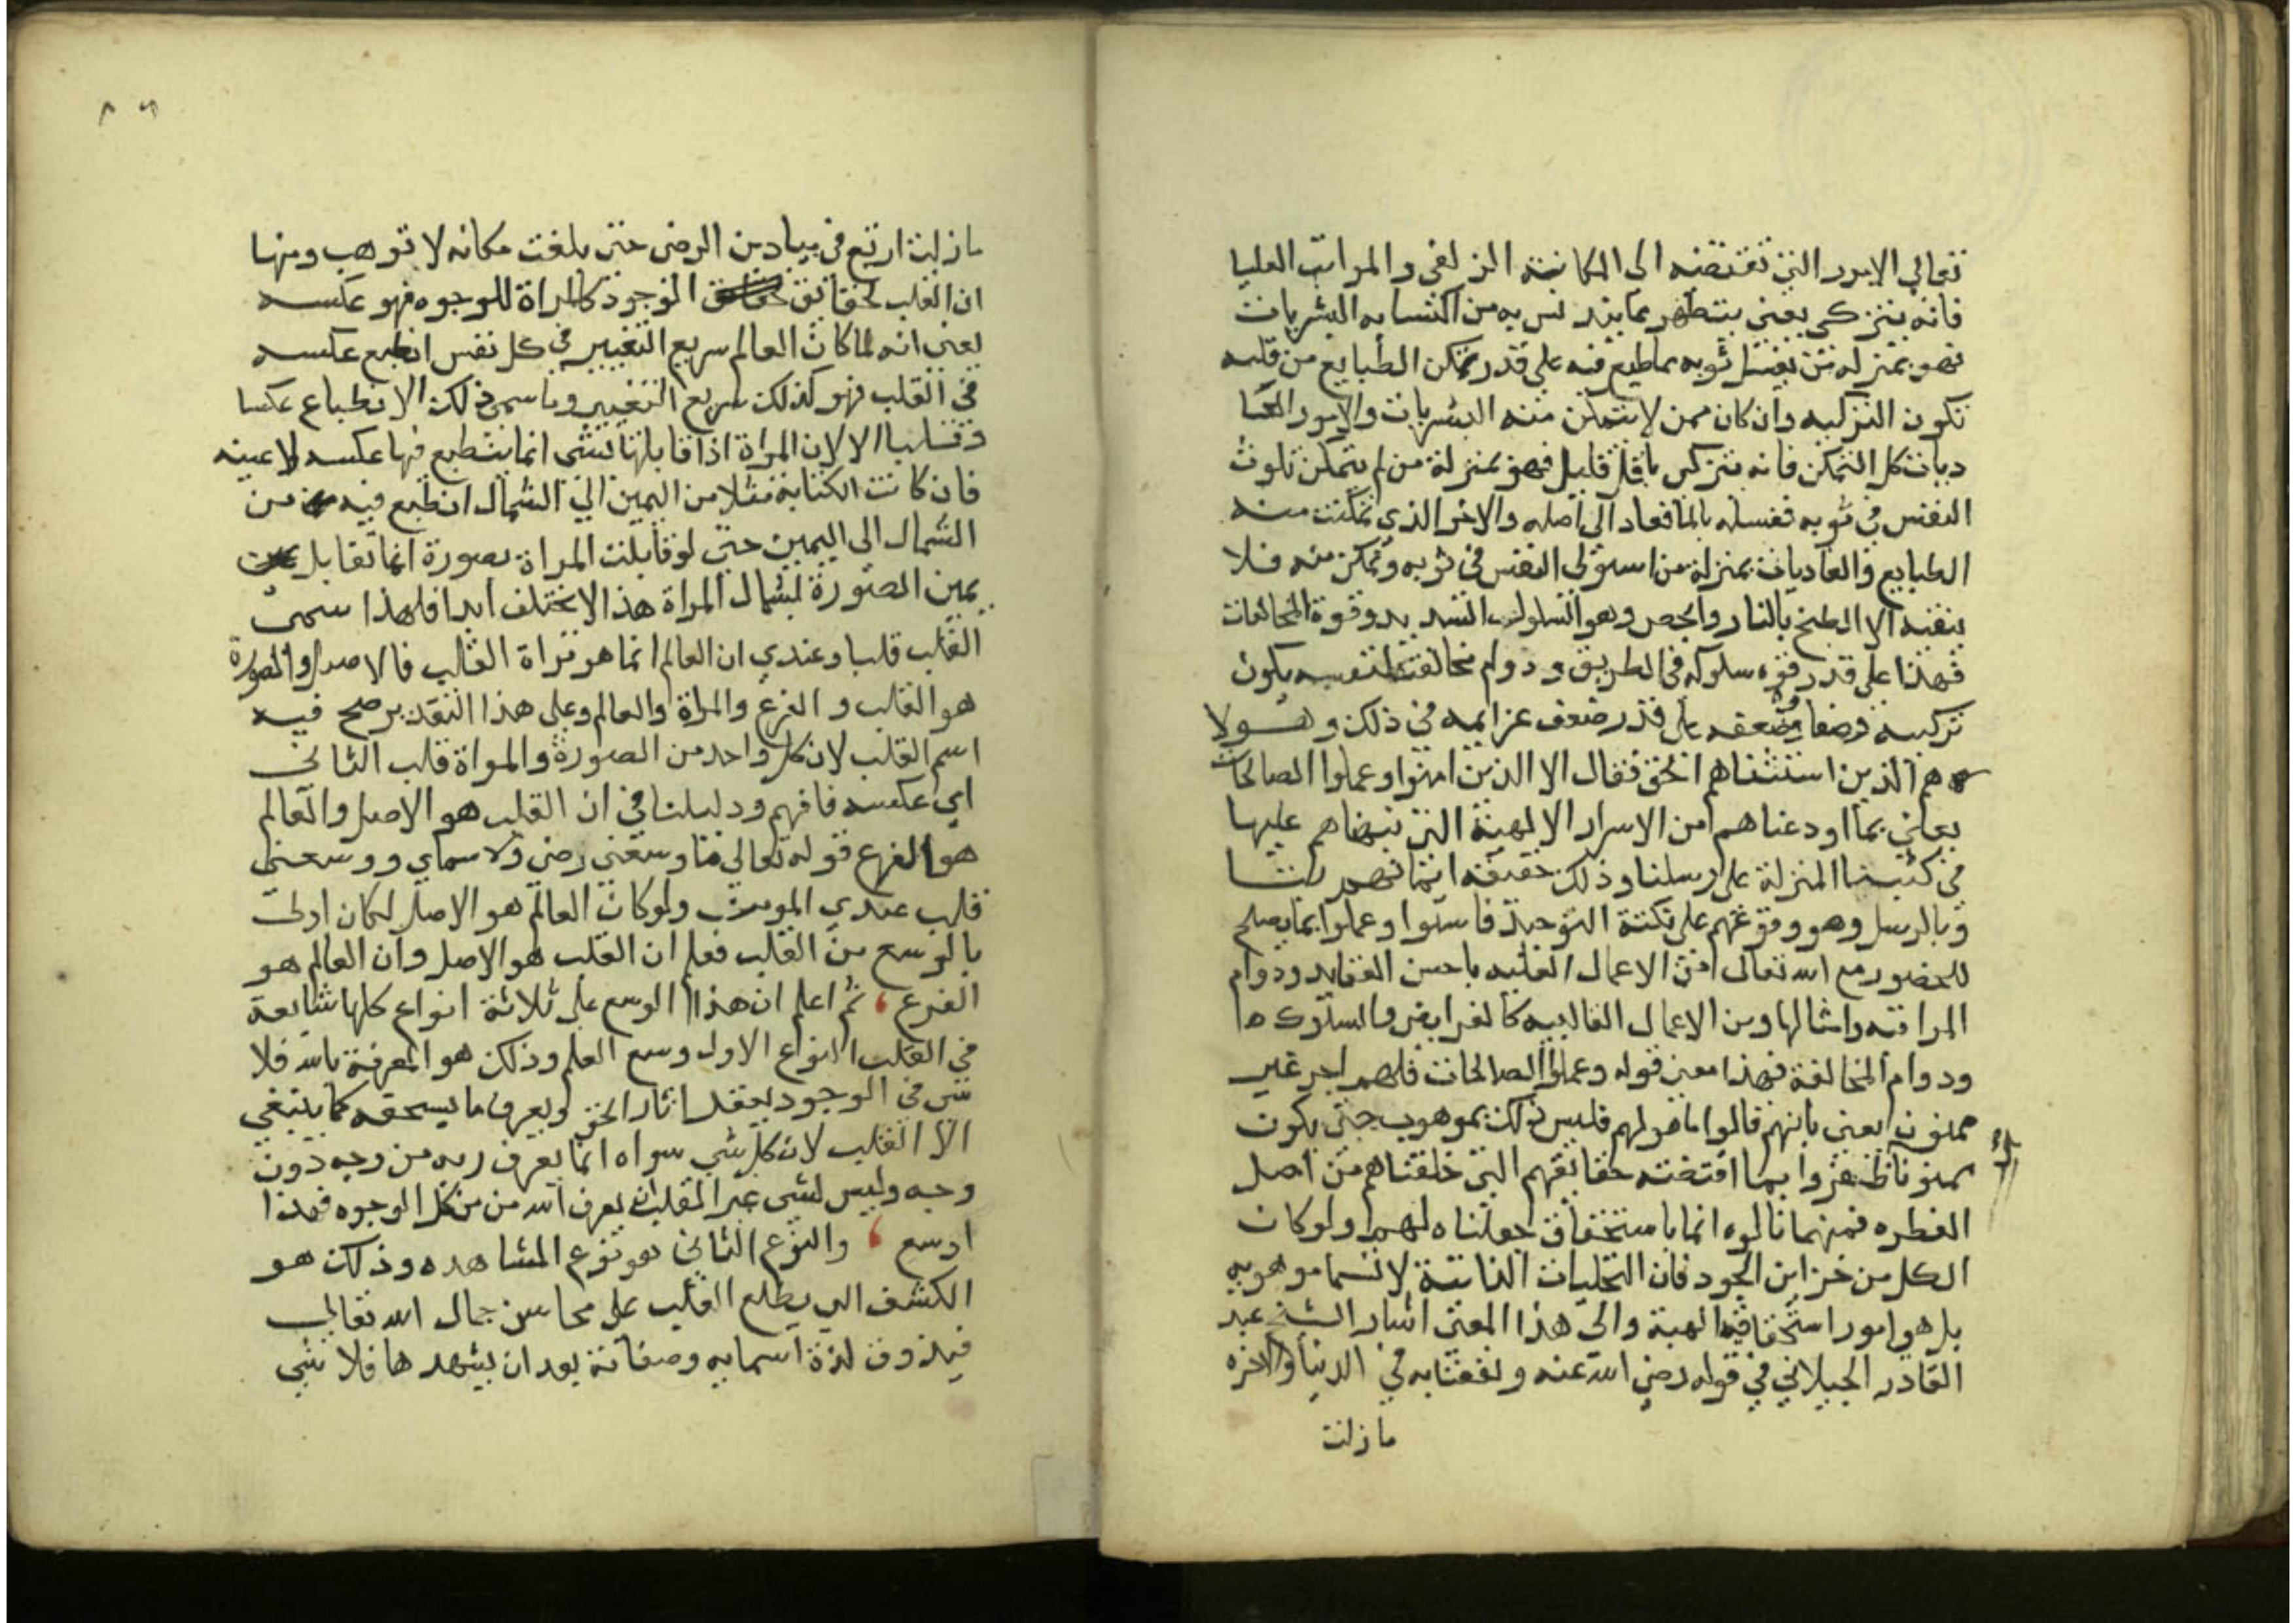 تعالى الامور التى تقتضيه الى المكانة الزلفى والمراتب العليا
فانه يتزكى يعنى يتطهر مما يتدنس به من اكتسابه البشريات
فهو بمنزله من يغسل ثوبه مما طبع فيه على قدر تمكن الطبايع من قلبه
تكون التزكيه وان كان ممن لا يتمكن منه البشريات والامور العا
ديات كل التمكن فانه يتزكى باقل قليل فهو بمنزلة من لم يتمكن تلوث
النقش فى ثوبه فغسله بالما فعاد الى اصله والاخر الذي تمكنت منه
الطبايع والعاديات بمنزلة من استولى النقش فى ثوبه وتمكن منه فلا
ينقيه الا الطبخ بالنار والجص وهو السلوك الشديد وقوة المخالفات
فهذا على قدر قوه سلوكه فى الطريق ودوام مخالفته لنفسه يكون
تزكيه وصفا وضعفه على قدر ضعف عزايمه فى ذلك وهولا
هم الذين استثناهم الحق فقال الا الذين امنوا وعملوا الصالحات
يعنى بما اودعناهم من الاسرار الالهية التى نبهناهم عليها
فى كتبنا المنزلة على رسلنا وذلك حقيقه ايمانهم بنا
وبالرسل وهو وقوعهم على نكتة التوحيد فامنوا وعملوا بما يصلح
للحضور مع الله تعالى من الاعمال القلبيه باحسن العقايد ودوام
المراقبه وامثالها ومن الاعمال القالبيه كالفرايض والسلوك ها
ودوام المخالفة فهذا معنى قوله وعملوا الصالحات فلهم اجر غير
ممنون يعنى بانهم قالوا ما هو لهم فليس ذلك بموهوب حتى يكون
ممنونا ظفروا بما اقتضته حقايقهم التى خلقناهم من اصل
الفطره فمهما نالوه انما باستحقاق جعلناه لهم ولو كان
الكل من خزاين الجود فان التجليات الذاتية لا تسما موهوبه
بل هى امور استحقاقيه الهية والى هذا المعنى اشار الشيخ عبد
القادر الجيلانى فى قوله رضى الله عنه ونفعنا به فى الدنيا والاخره
ما زلت
ما زلت ارتع فى ميادين الرضى حتى بلغت مكانه لا توهب ومنها
ان القلب لحقايق الوجود كالمراة للوجوه فهو عكسه
يعنى انه لما كان العالم سريع التغيير فى كل نفس انطبع عكسه
فى القلب فهو كذلك سريع التغيير وما سمى ذلك الانطباع عكسا
وقلبا الا لان المراة اذا قابلها شى انما ينطبع فيها عكسه لا عينه
فان كانت الكتابة مثلا من اليمين الى الشمال انطبع فيه من
الشمال الى اليمين حتى لو قابلت المراة بصورة انما تقابل
يمين الصورة لشمال المراة هذا لا يختلف ابدا فلهذا سمى
القلب قلبا وعندي ان العالم انما هو مراة القلب فالاصل والصورة
هو القلب والفرع والمراة والعالم وعلى هذا التقدير صح فيه
اسم القلب لان كل واحد من الصورة والمراة قلب الثانى
اي عكسه فافهم ودليلنا فى ان القلب هو الاصل والعالم
هو الفرع قوله تعالى ما وسعنى ارضى ولا سماي ووسعنى
قلب عبدي المومن ولو كان العالم هو الاصل لكان اولى
بالوسع من القلب فعلم ان القلب هو الاصل وان العالم هو
الفرع ، ثم اعلم ان هذا الوسع على ثلاثة انواع كلها شايعة
فى القلب النوع الاول وسع العلم وذلك هو المعرفة بالله فلا
شى فى الوجود يعقل اثار الحق ويعرف ما يستحقه كما ينبغى
الا القلب لان كل شي سواه انما يعرف ربه من وجه دون
وجه وليس لشى غير القلب ان يعرف الله من من كل الوجوه فهذا
اوسع ، والنوع الثانى هو نوع المشاهده وذلك هو
الكشف الى يطلع القلب على محاسن جمال الله تعالى
فيذوق لذة اسمايه وصفاته بعد ان يشهدها فلا شى